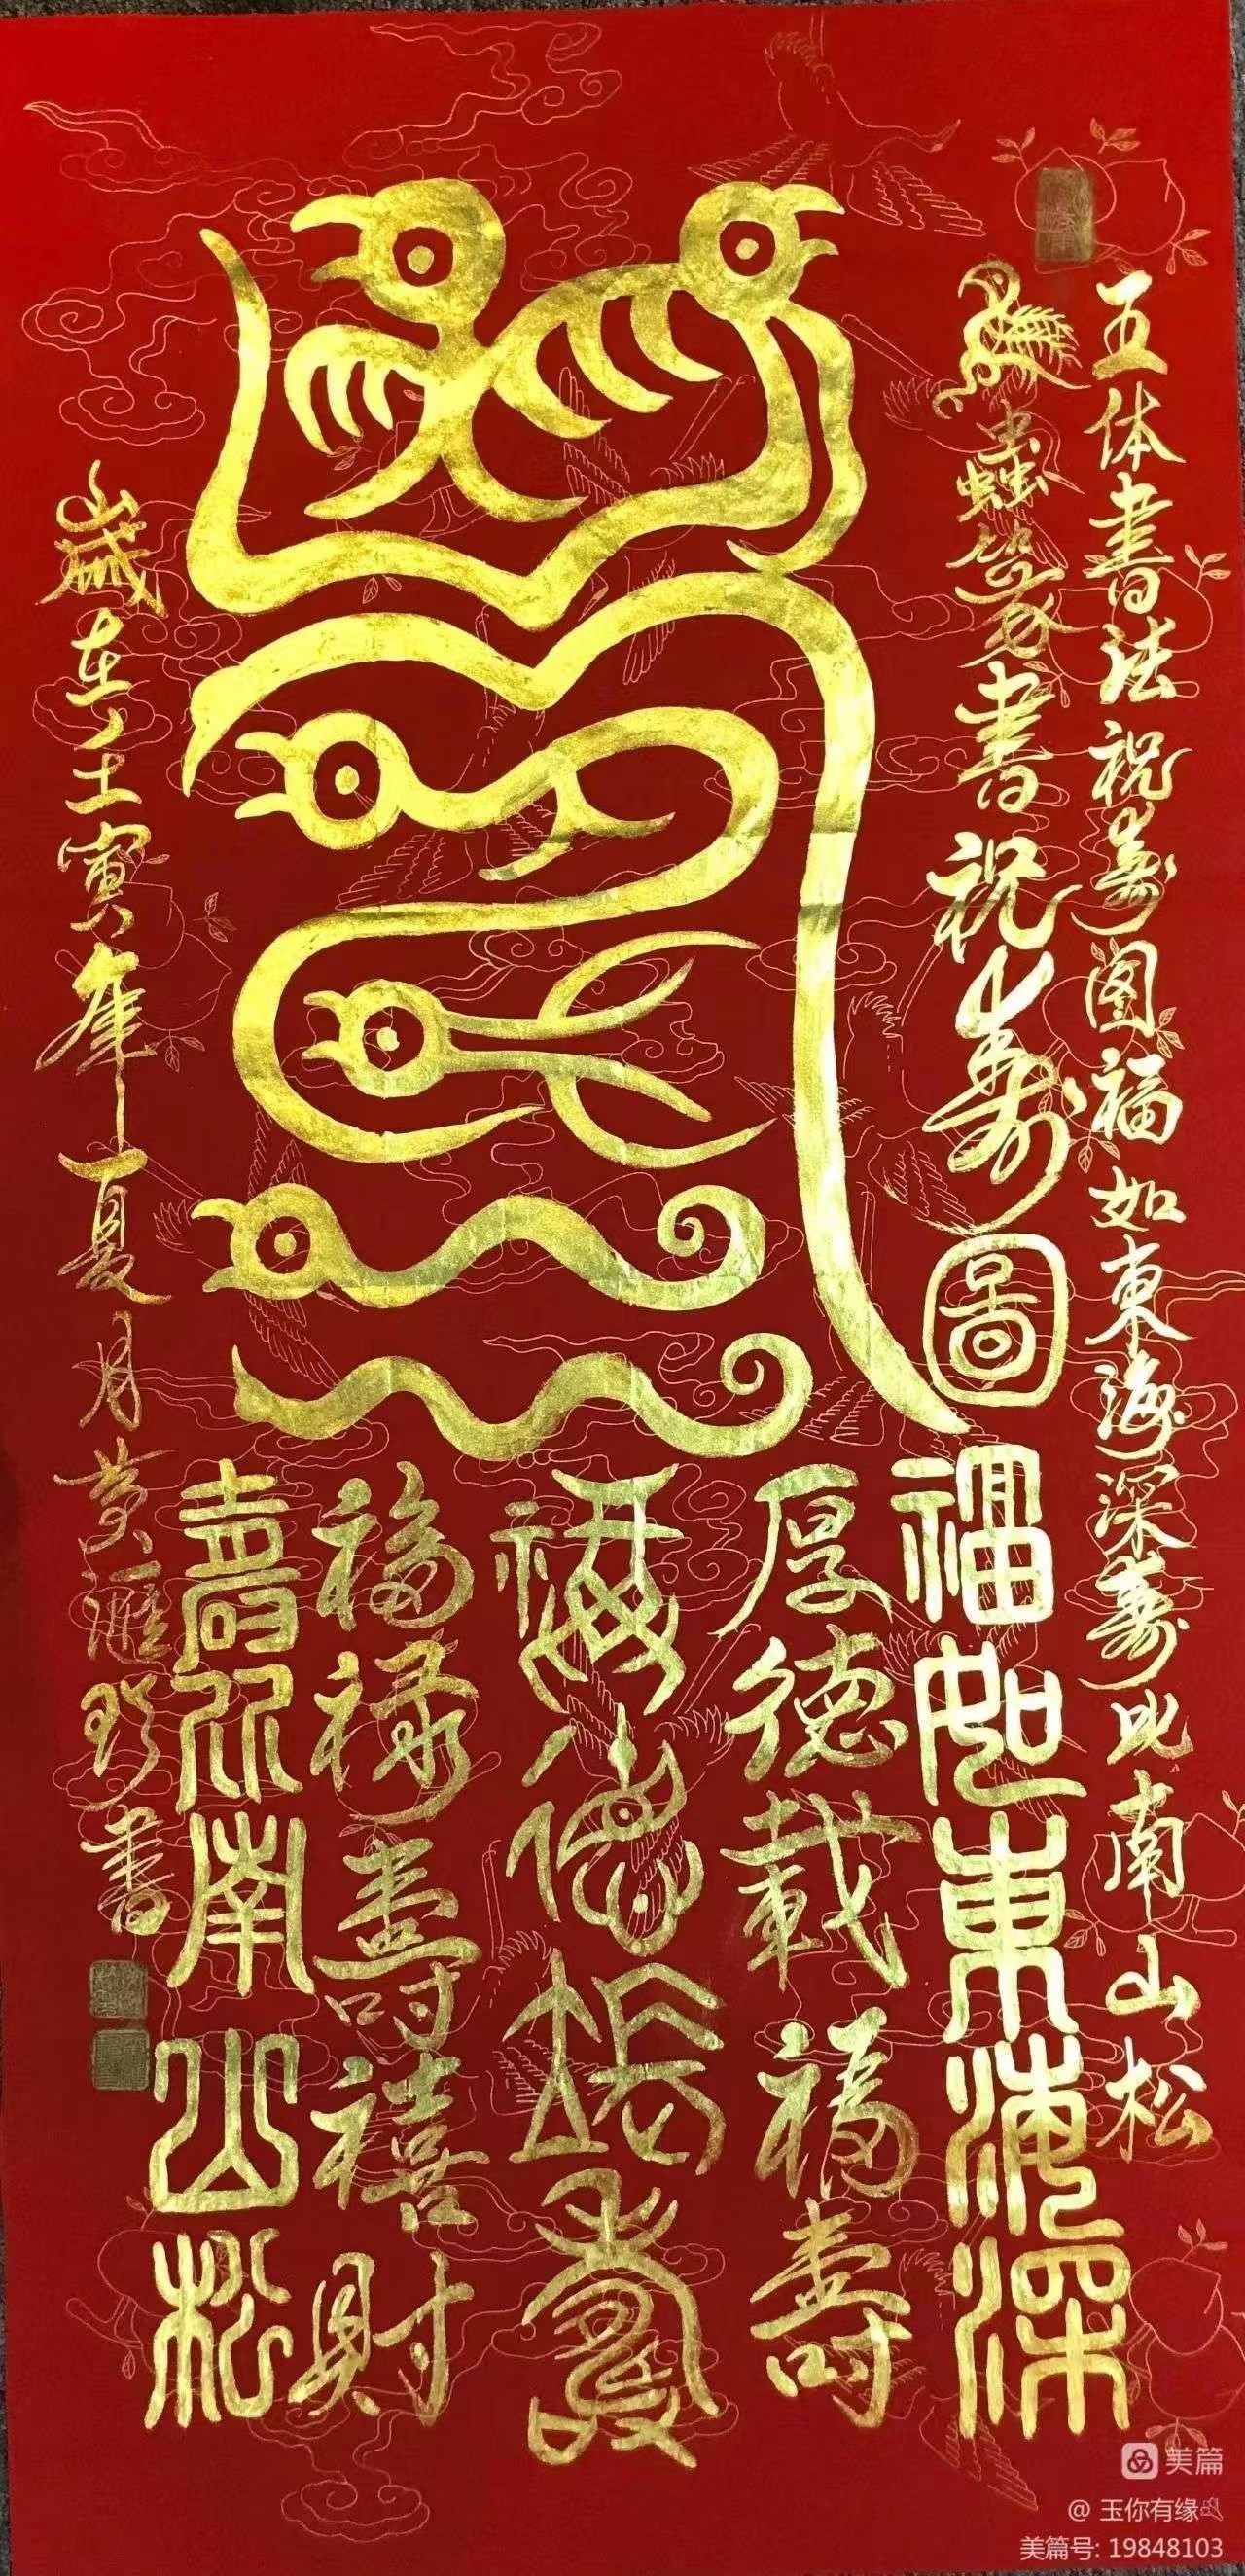 五体書法祝壽图福如東海深壽比南山松
鳥蟲篆書祝壽圖
福如東海深
厚德載福壽
福祿壽禧財
壽比南山松
歲在壬寅年夏月黄滙玲書
美篇
@ 玉你有缘
美篇号: 19848103